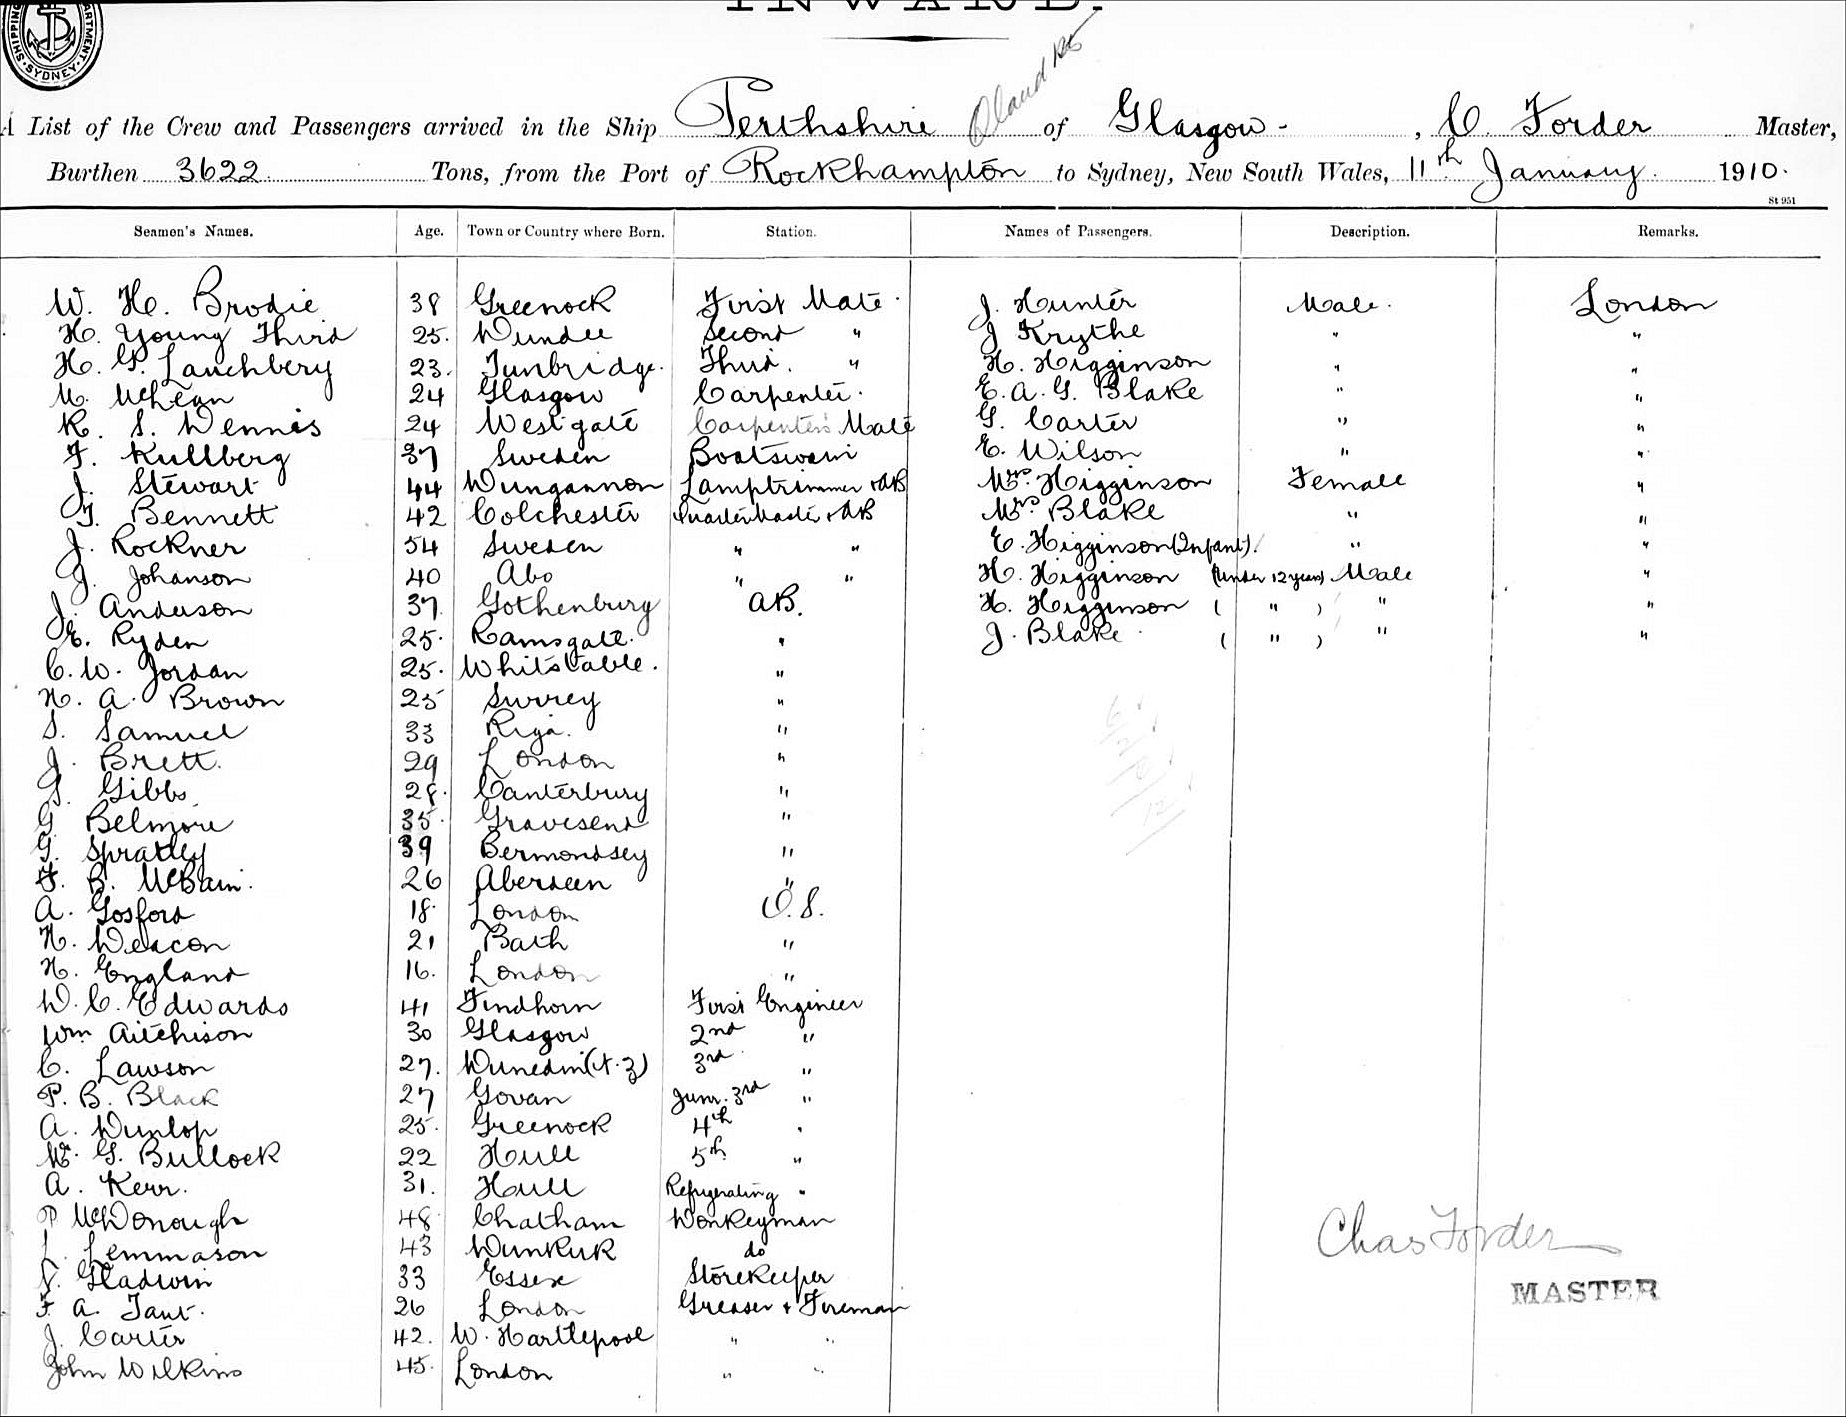 INWARD.
SHIPPING DEPARTMENT. SYDNEY.
A List of the Crew and Passengers arrived in the Ship Perthshire of Glasgow - , C. Forder Master,
Burthen 3622 Tons, from the Port of Rockhampton to Sydney, New South Wales, 11th January 1910.
St 951
Seamen's Names. Age. Town or Country where Born. Station. Names of Passengers. Description. Remarks.
W. H. Brodie 38 Greenock First Mate J. Hunter Male. London
H. Young Third 25. Dundee Second " J Krythe " "
H. G. Lanchbery 23. Tunbridge. Third. " H. Higginson " "
M. McLean 24 Glasgow Carpenter. E. A. G. Blake " "
R. S. Dennis 24 Westgate Carpenters Mate G. Carter " "
F. Kullberg 37 Sweden Boatswain E. Wilson " "
J. Stewart 44 Dungannon Lamptrimmer & AB Mrs. Higginson Female "
F. Bennett 42 Colchester QuarterMaster & AB Mrs. Blake " "
J. Rockner 54 Sweden " " E. Higginson (Infant). " "
J. Johanson 40 Abo " " H. Higginson (Under 12 years) Male "
J. Anderson 37. Gothenburg AB. H. Higginson ( " ) " "
E. Ryden 25. Ramsgate. " J. Blake ( " ) " "
C. W. Jordan 25. Whitstable. "
H. A. Brown 25 Surrey "
S. Samuel 33 Riga. "
J. Brett. 29 London "
S. Gibbs 28. Canterbury "
G Belmore 35. Gravesend "
G. Spratley 39 Bermondsey "
F. B. McBain. 26 Aberdeen "
A. Gosford 18. London O.S.
H. Deacon 21 Bath "
H. England 16. London "
W. C. Edwards 41 Findhorn First Engineer
Wm Aitchison 30 Glasgow 2nd "
C. Lawson 27. Dunedin (N.Z) 3rd "
P. B. Black 27 Govan Junr. 3rd "
A. Dunlop 25. Greenock 4th "
W. G. Bullock 22 Hull 5th "
A. Kerr. 31. Hull Refrigerating "
P McDonough 48 Chatham Donkeyman
L. Lemmason 43 Dunkirk do
Chas Forder
S. Gladwin 33 Essex Storekeeper
MASTER
F. A. Tant. 26 London Greaser & Fireman
J. Carter 42. W. Hartlepool " "
John Wilkins 45. London " "